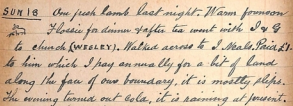 SUN 18 One fresh lamb last night. Warm forenoon
Flossie for dinner & after tea went with I & G
to church (WESLEY). Walked across to I Neals, Paid £1
to him which I pay annually for a bit of land
along the face of our boundary, it is mostly slips.
The evening turned out cold, it is raining at present.